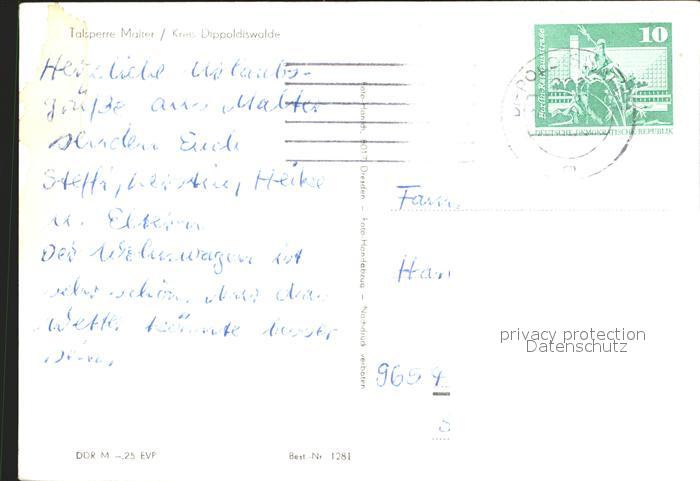 Talsperre Malter / Kreis Dippoldiswalde
Herzliche Urlaubs-
grüße aus Malter
senden Euch
Steffi, Kerstin, Heike
u. Eltern
Der Wohnwagen ist
sehr schön, nur das
Wetter könnte besser
sein.
DDR M –,25 EVP
Best.-Nr. 1281
Dresden – Foto-Handabzug – Nachdruck verboten
10
Berlin-Rathausstraße
DEUTSCHE DEMOKRATISCHE REPUBLIK
Fam.
Han
9654
privacy protection
Datenschutz